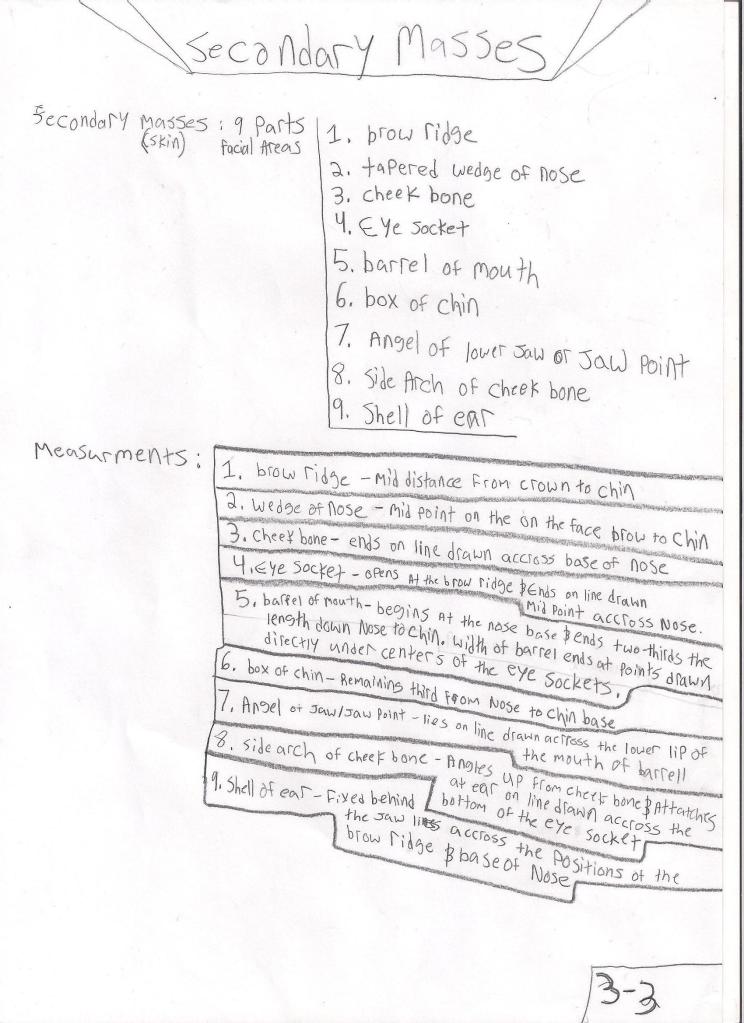 Secondary Masses
Secondary Masses : 9 Parts
(skin) facial Areas
1. brow ridge
2. tapered wedge of nose
3. cheek bone
4. Eye socket
5. barrel of mouth
6. box of chin
7. Angel of lower Jaw or Jaw Point
8. Side Arch of cheek bone
9. Shell of ear
Measurments :
1. brow ridge - Mid distance from crown to chin
2. wedge of nose - mid point on the on the face brow to chin
3. cheek bone - ends on line drawn accross base of nose
4. Eye socket - opens At the brow ridge & Ends on line drawn
Mid Point accross Nose.
5. barrel of mouth - begins At the nose base & ends two-thirds the
length down Nose to chin. Width of barrel ends at points drawn
directly under centers of the eye sockets.
6. box of chin - Remaining third from Nose to chin base
7. Angel of Jaw/Jaw Point - lies on line drawn across the lower lip of
the mouth of barrell
8. side arch of cheek bone - Angles up from cheek bone & Attatches
at ear on line drawn accross the
bottom of the eye socket
9. Shell of ear - Fixed behind
the jaw lines accross the Positions of the
brow ridge & base of Nose
3-3